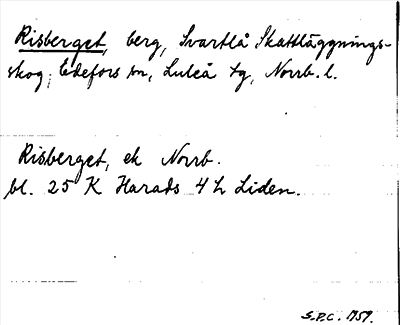 Risberget, berg, Svartlå Skattläggnings-
skog, Edefors sn, Luleå tg, Norrb. l.
Risberget, ek Norrb.
bl. 25 K Harads 4 h Liden.
S.P.C. 1959.